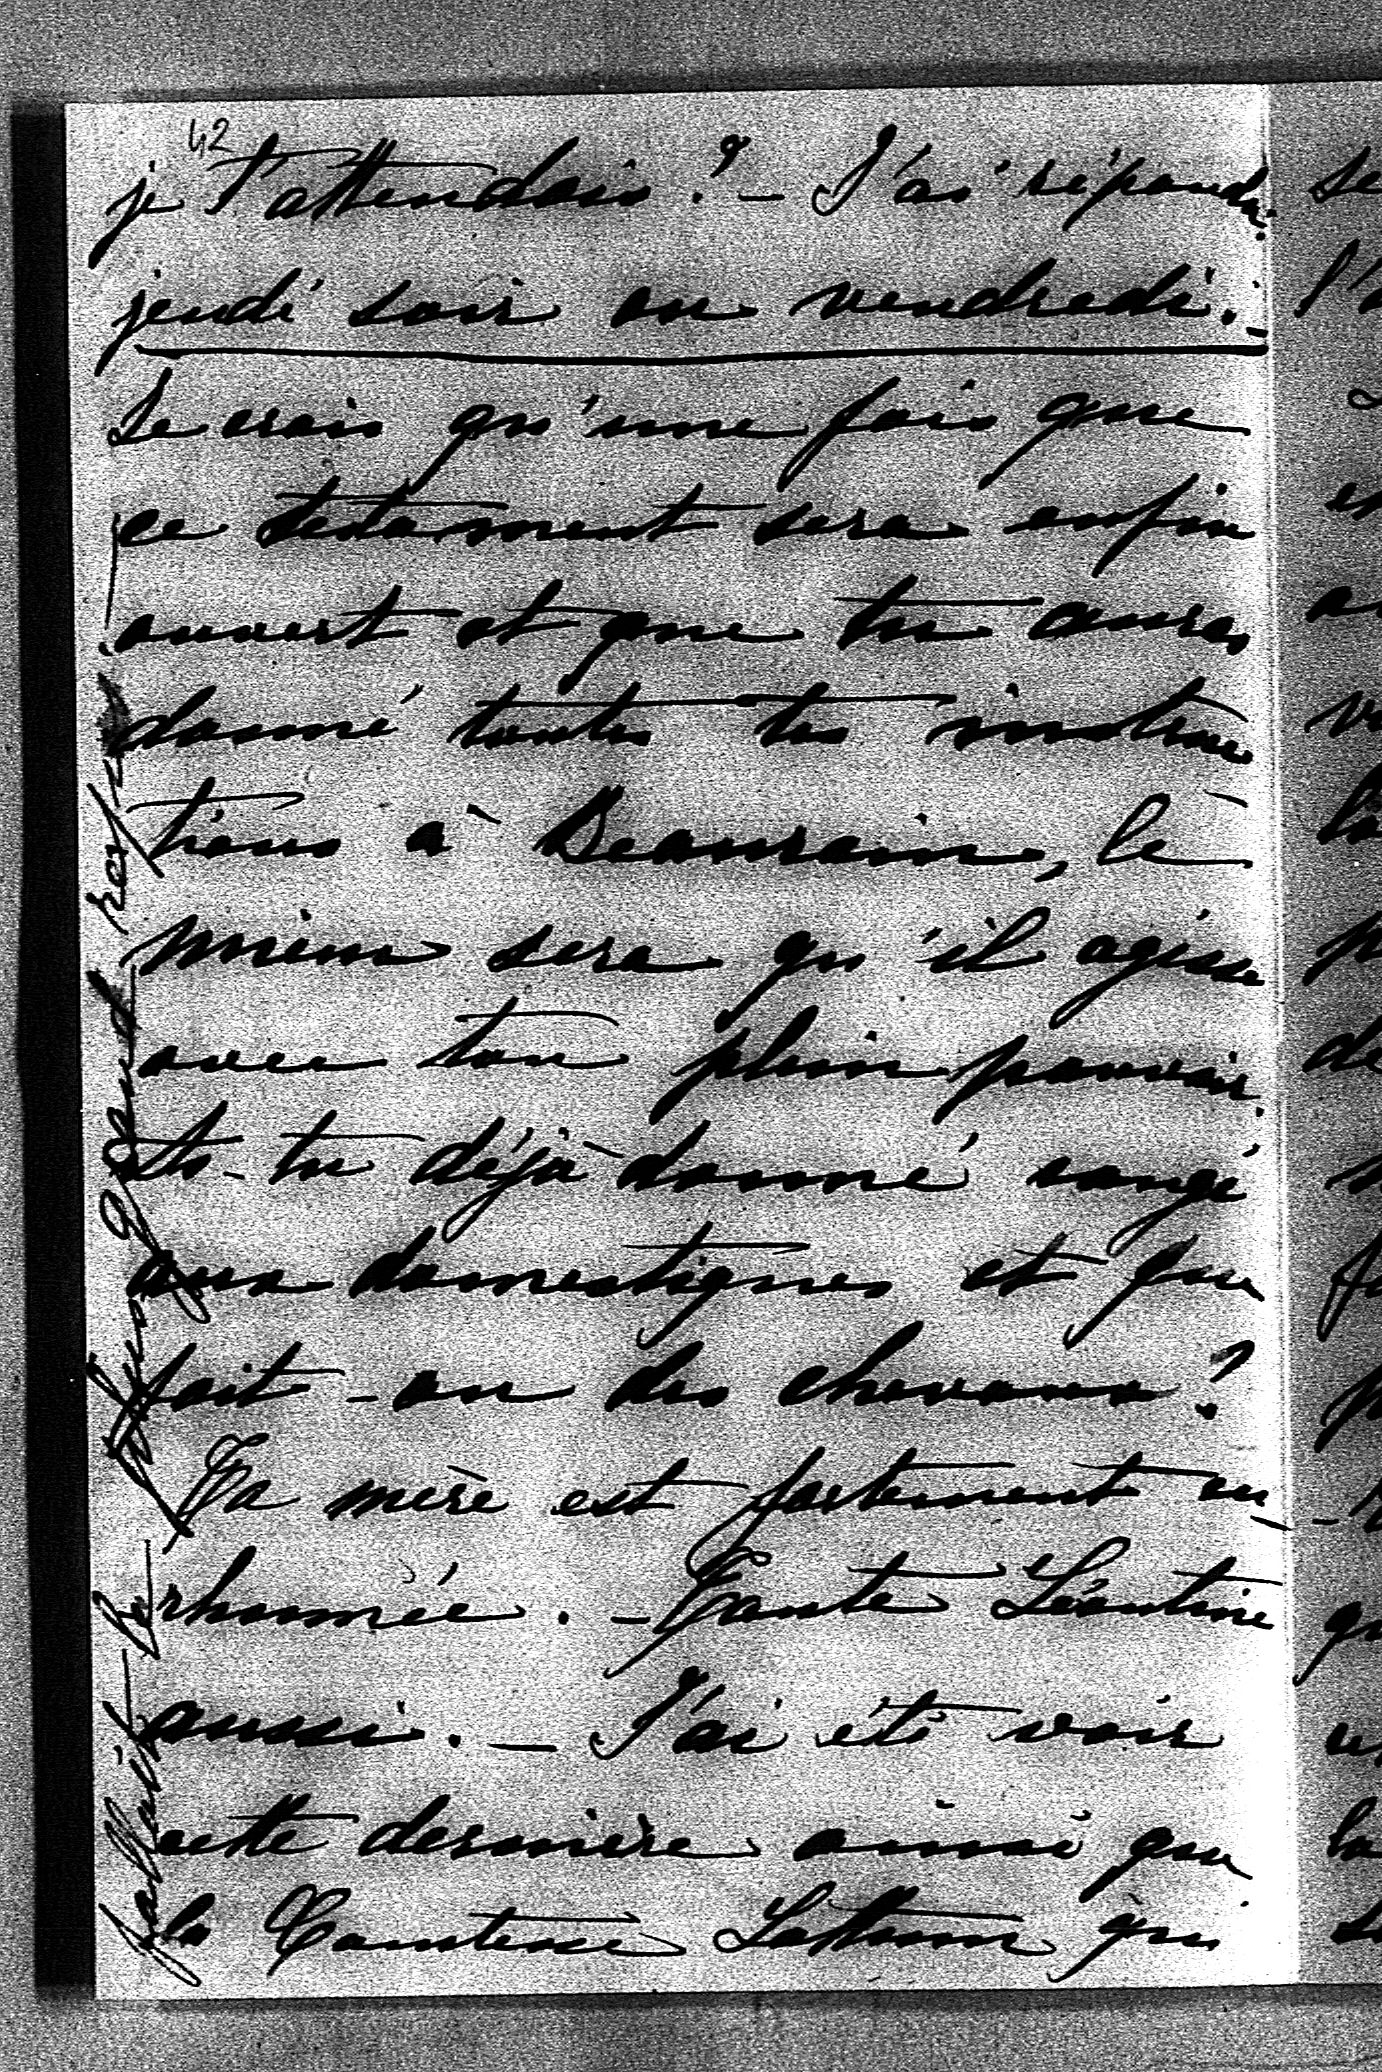 42
je t'attendais? – J'ai répondu:
jeudi soir ou vendredi. –
Je crois qu'une fois que
ce testament sera enfin
ouvert et que tu auras
donné toutes tes instruc
tions à Beaurain, le
mieux sera qu'il agisse
avec ton plein pouvoir.
As-tu déjà donné congé
aux domestiques et que
fait-on des chevaux?
Ta mère est fortement en-
rhumée. – Tante Léontine
aussi. – J'ai été voir
cette dernière ainsi que
la Comtesse qui
fallait le